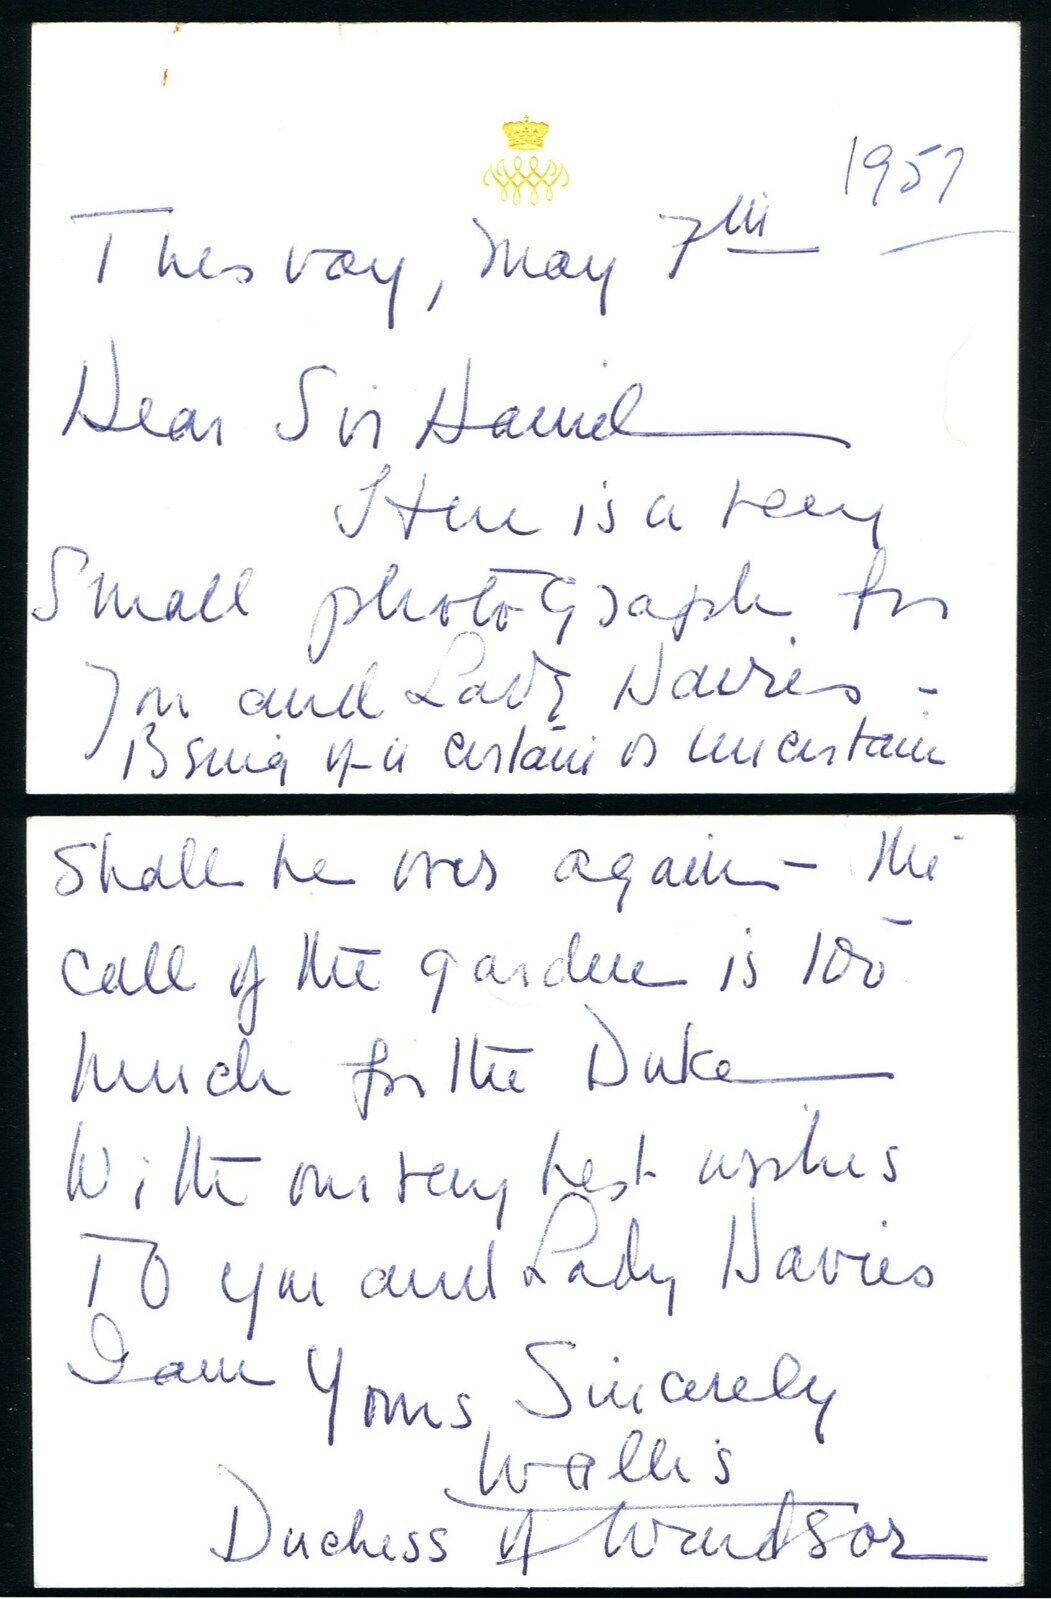 1957
Tuesday, May 7th
Dear Sir Daniel
Here is a very
Small photograph for
you and Lady Davies -
Being of a certain or uncertain
Shall be over again - the
call of the garden is too
much for the Duke
With our very best wishes
To you and Lady Davies
I am Yours Sincerely
Wallis
Duchess of Windsor